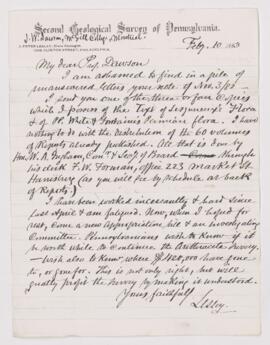 Second Geological Survey of Pennsylvania.
J. W. Dawson, McGill College, Montreal
J. PETER LESLEY, State Geologist,
1008 CLINTON STREET, PHILADELPHIA.
Feby. 10, 1883
My dear Prof. Dawson
I am ashamed to find in a pile of
unanswered letters your note of Nov. 3/82 -
I sent you one of the three or four copies
which I possess of the Text of Lesquereux's Flora
& of PP. White & Fontaine's Permian flora. I have
nothing to do with the distribution of the 60 volumes
of Reports already published. All that is done by
Wm. A. Ingham, Comr. & Secy of Board through
his clerk F. W. Forman, office 223 Market St
Harrisburg (as you will see by schedule at back
of Reports.)
I have been worked incessantly & hard since
last April & am fatigued. Now, when I hoped for
rest, come a new Appropriation bill & an Investigating
Committee. Pennsylvanians wish to know if it
be worth while to continue the Anthracite Survey.
- Wish also to know where $ 420,000 have gone
to, or gone for. This is not only right, but will
greatly profit the Survey by making it understood.
Yours faithfully
Lesley